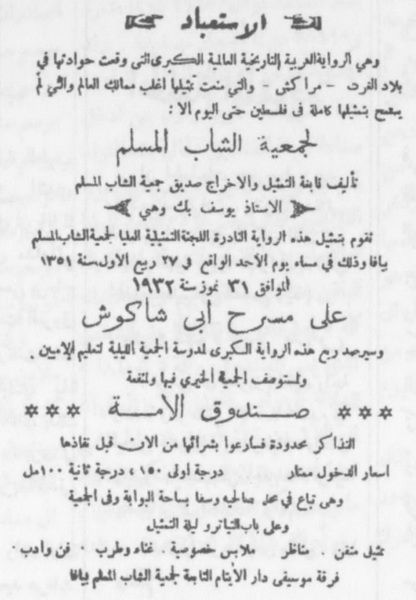 الاستعباد
وهي الرواية العربية التاريخية العالمية الكبرى التي وقعت حوادثها في
بلاد الغرب - مراكش - والتي منعت تمثيلها اغلب ممالك العالم والتي لم
يسمح بتمثيلها كاملة في فلسطين حتى اليوم الا:
لجمعية الشاب المسلم
تأليف نابغة التمثيل والاخراج صديق جمعية الشاب المسلم
الاستاذ يوسف بك وهبي
تقوم بتمثيل هذه الرواية النادرة اللجنة التمثيلية العليا لجمعية الشاب المسلم
بيافا وذلك في مساء يوم الأحد الواقع في ٢٧ ربيع الاول سنة ١٣٥١
الموافق ٣١ تموز سنة ١٩٣٢
على مسرح أبي شاكوش
وسيرصد ريع هذه الرواية الكبرى لمدرسة الجمعية الليلية لتعليم الأميين
ولمستوصف الجمعية الخيري فيها ولمنفعة
*** صندوق الأمة ***
التذاكر محدودة فسارعوا بشرائها من الآن قبل نفاذها
أسعار الدخول ممتاز درجة أولى ١٥٠ ، درجة ثانية ١٠٠ مل
وهي تباع في محل صالحه وسفا بساحة الرواية وفي الجمعية
وعلى باب التياترو ليلة التمثيل
تمثيل متقن . مناظر . ملابس خصوصية . غناء وطرب . فن وأدب
فرقة موسيقى دار الأيتام التابعة لجمعية الشاب المسلم بيافا